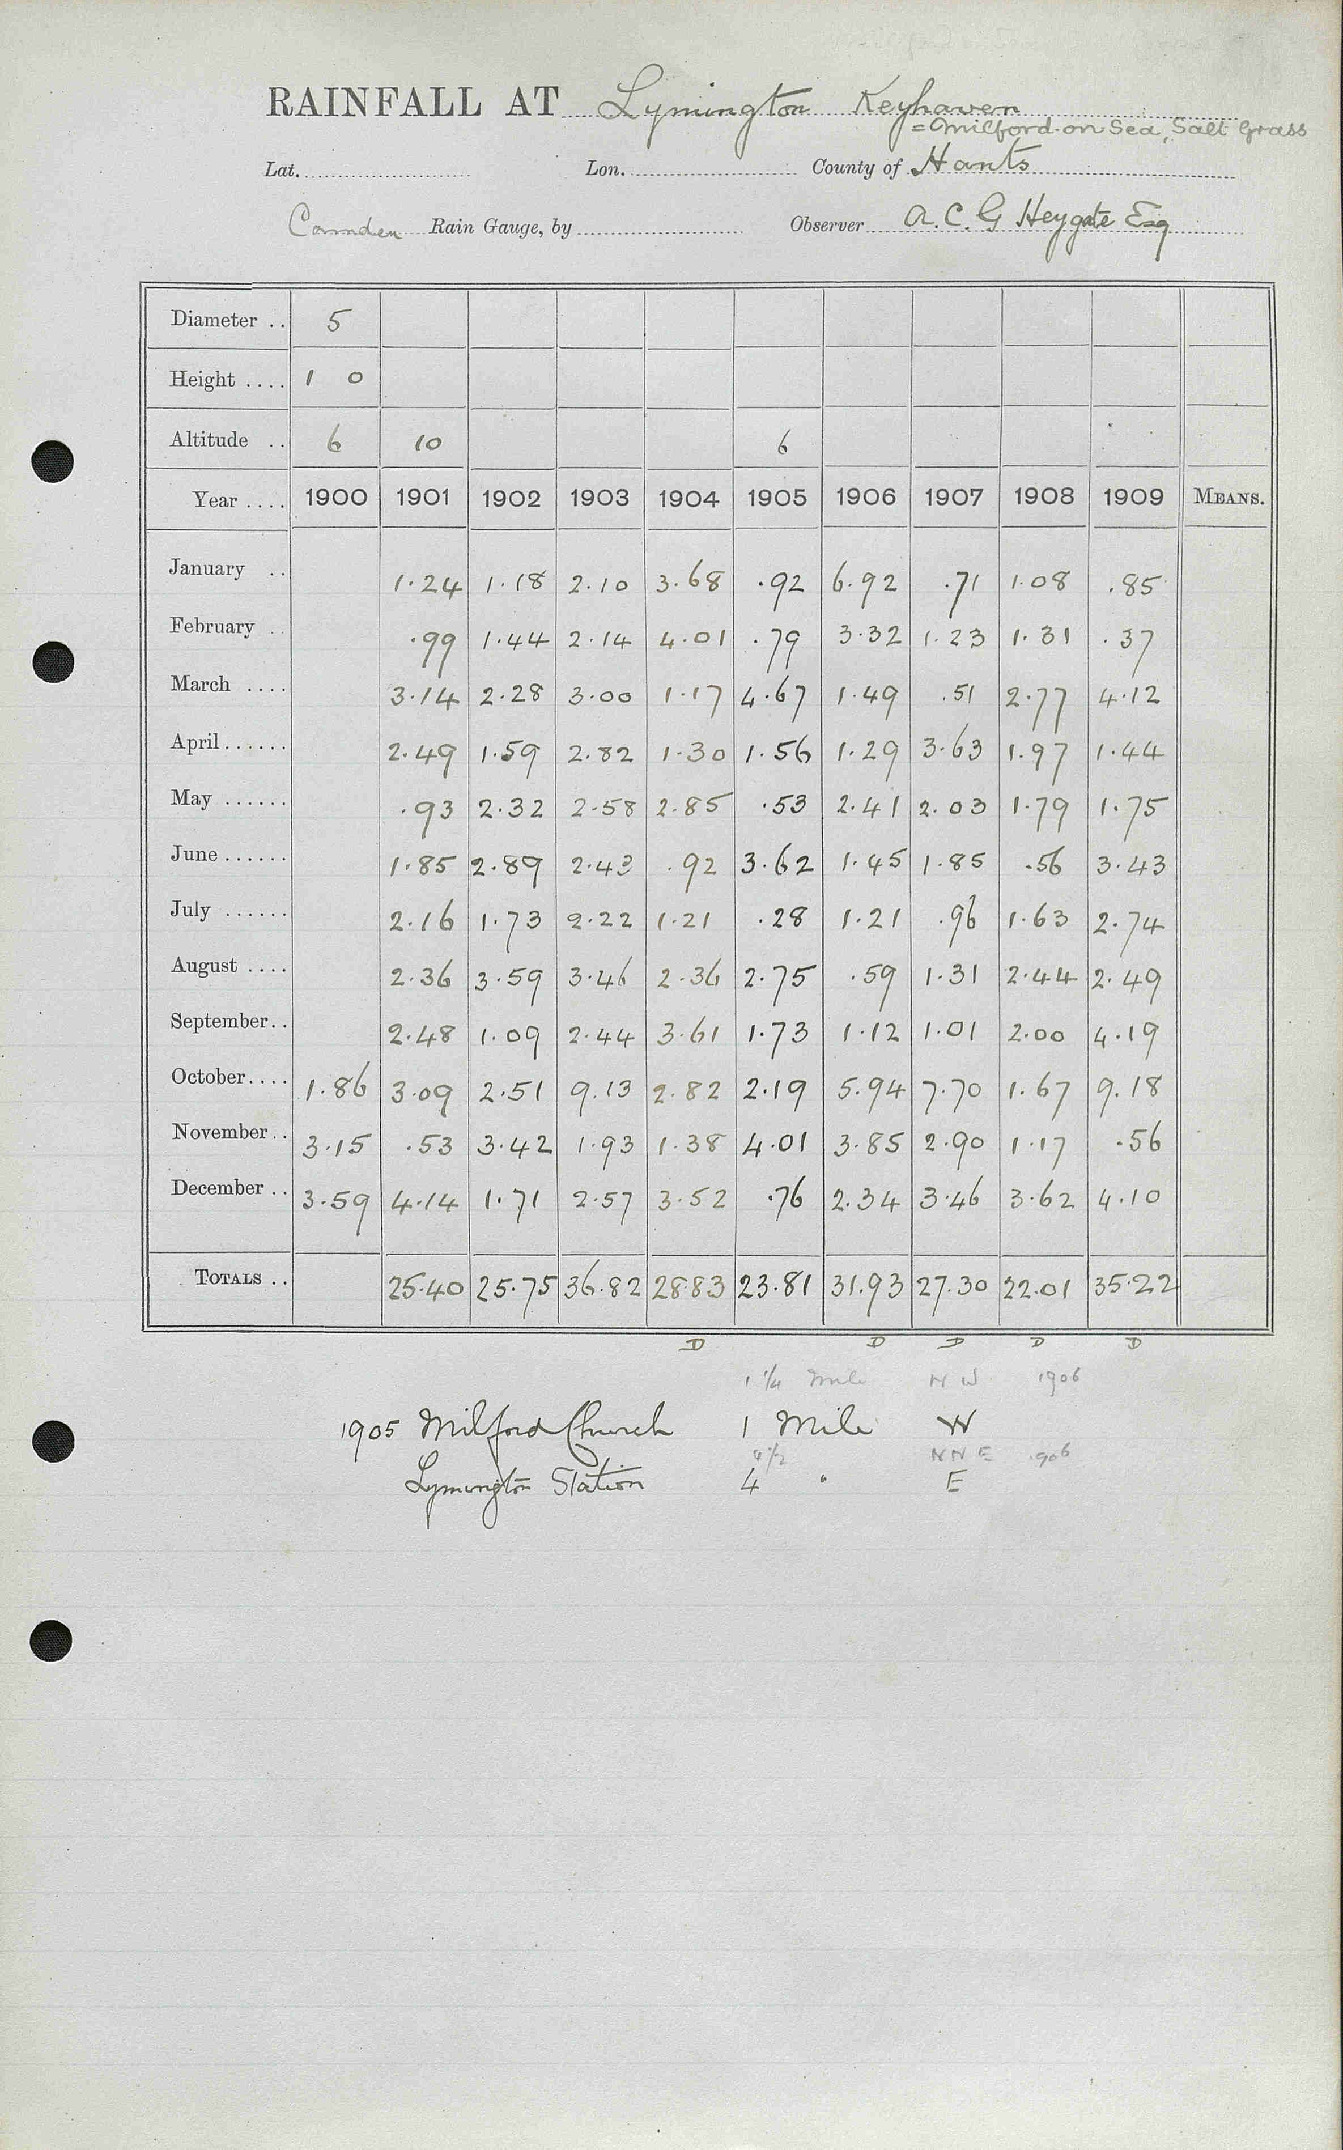 RAINFALL AT Lymington Keyhaven
= Milford-on Sea, Salt Grass
Lat. Lon. County of Hants
Camden Rain Gauge, by Observer A. C. G Heygate Esq
Diameter .. 5
Height .... 1 0
Altitude .. 6 10 6
Year .... 1900 1901 1902 1903 1904 1905 1906 1907 1908 1909 MEANS.
January .. 1.24 1.18 2.10 3.68 .92 6.92 .71 1.08 .85
February .. .99 1.44 2.14 4.01 .79 3.32 1.23 1.31 .37
March .... 3.14 2.28 3.00 1.17 4.67 1.49 .51 2.77 4.12
April...... 2.49 1.59 2.82 1.30 1.56 1.29 3.63 1.97 1.44
May ...... .93 2.32 2.58 2.85 .53 2.41 2.03 1.79 1.75
June ...... 1.85 2.89 2.43 .92 3.62 1.45 1.85 .56 3.43
July ...... 2.16 1.73 2.22 1.21 .28 1.21 .96 1.63 2.74
August .... 2.36 3.59 3.46 2.36 2.75 .59 1.31 2.44 2.49
September.. 2.48 1.09 2.44 3.61 1.73 1.12 1.01 2.00 4.19
October.... 1.86 3.09 2.51 9.13 2.82 2.19 5.94 7.70 1.67 9.18
November .. 3.15 .53 3.42 1.93 1.38 4.01 3.85 2.90 1.17 .56
December .. 3.59 4.14 1.71 2.57 3.52 .76 2.34 3.46 3.62 4.10
TOTALS .. 25.40 25.75 36.82 28.83 23.81 31.93 27.30 22.01 35.22
D D D D D
1 1/4 Mile N W 1906
1905 Milford Church 1 Mile W
4 1/2 N N E 1906
Lymington Station 4 " E